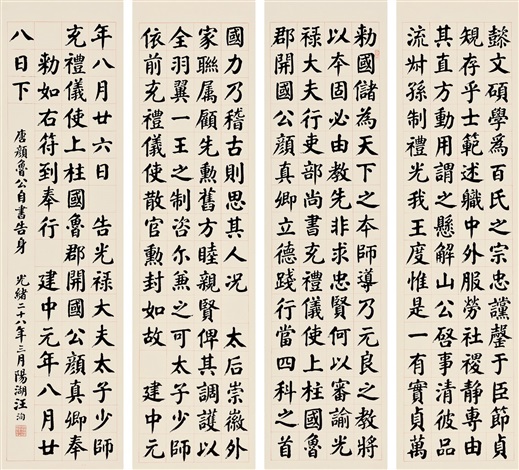 勅國儲為天下之本師導乃元良之教將
以本固必由教先非求忠賢何以審諭光
禄大夫行吏部尚書充禮儀使上柱國魯
郡開國公顏真卿立德踐行當四科之首
懿文碩學為百氏之宗忠讜罄于臣節貞
規存乎士範述職中外服勞社稷静專由
其直方動用謂之懸解山公啓事清彼品
流尗孫制禮光我王度惟是一有實貞萬
國力乃稽古則思其人況 太后崇徽外
家聯属顧先勲舊方睦親賢俾其調護以
全羽翼一王之制咨尔兼之可太子少師
依前充禮儀使散官勲封如故 建中元
年八月廿六日 告光禄大夫太子少師
充禮儀使上柱國魯郡開國公顏真卿奉
勅如右符到奉行 建中元年八月廿
八日下
唐顏魯公自書告身 光緒二十八年三月陽湖汪洵